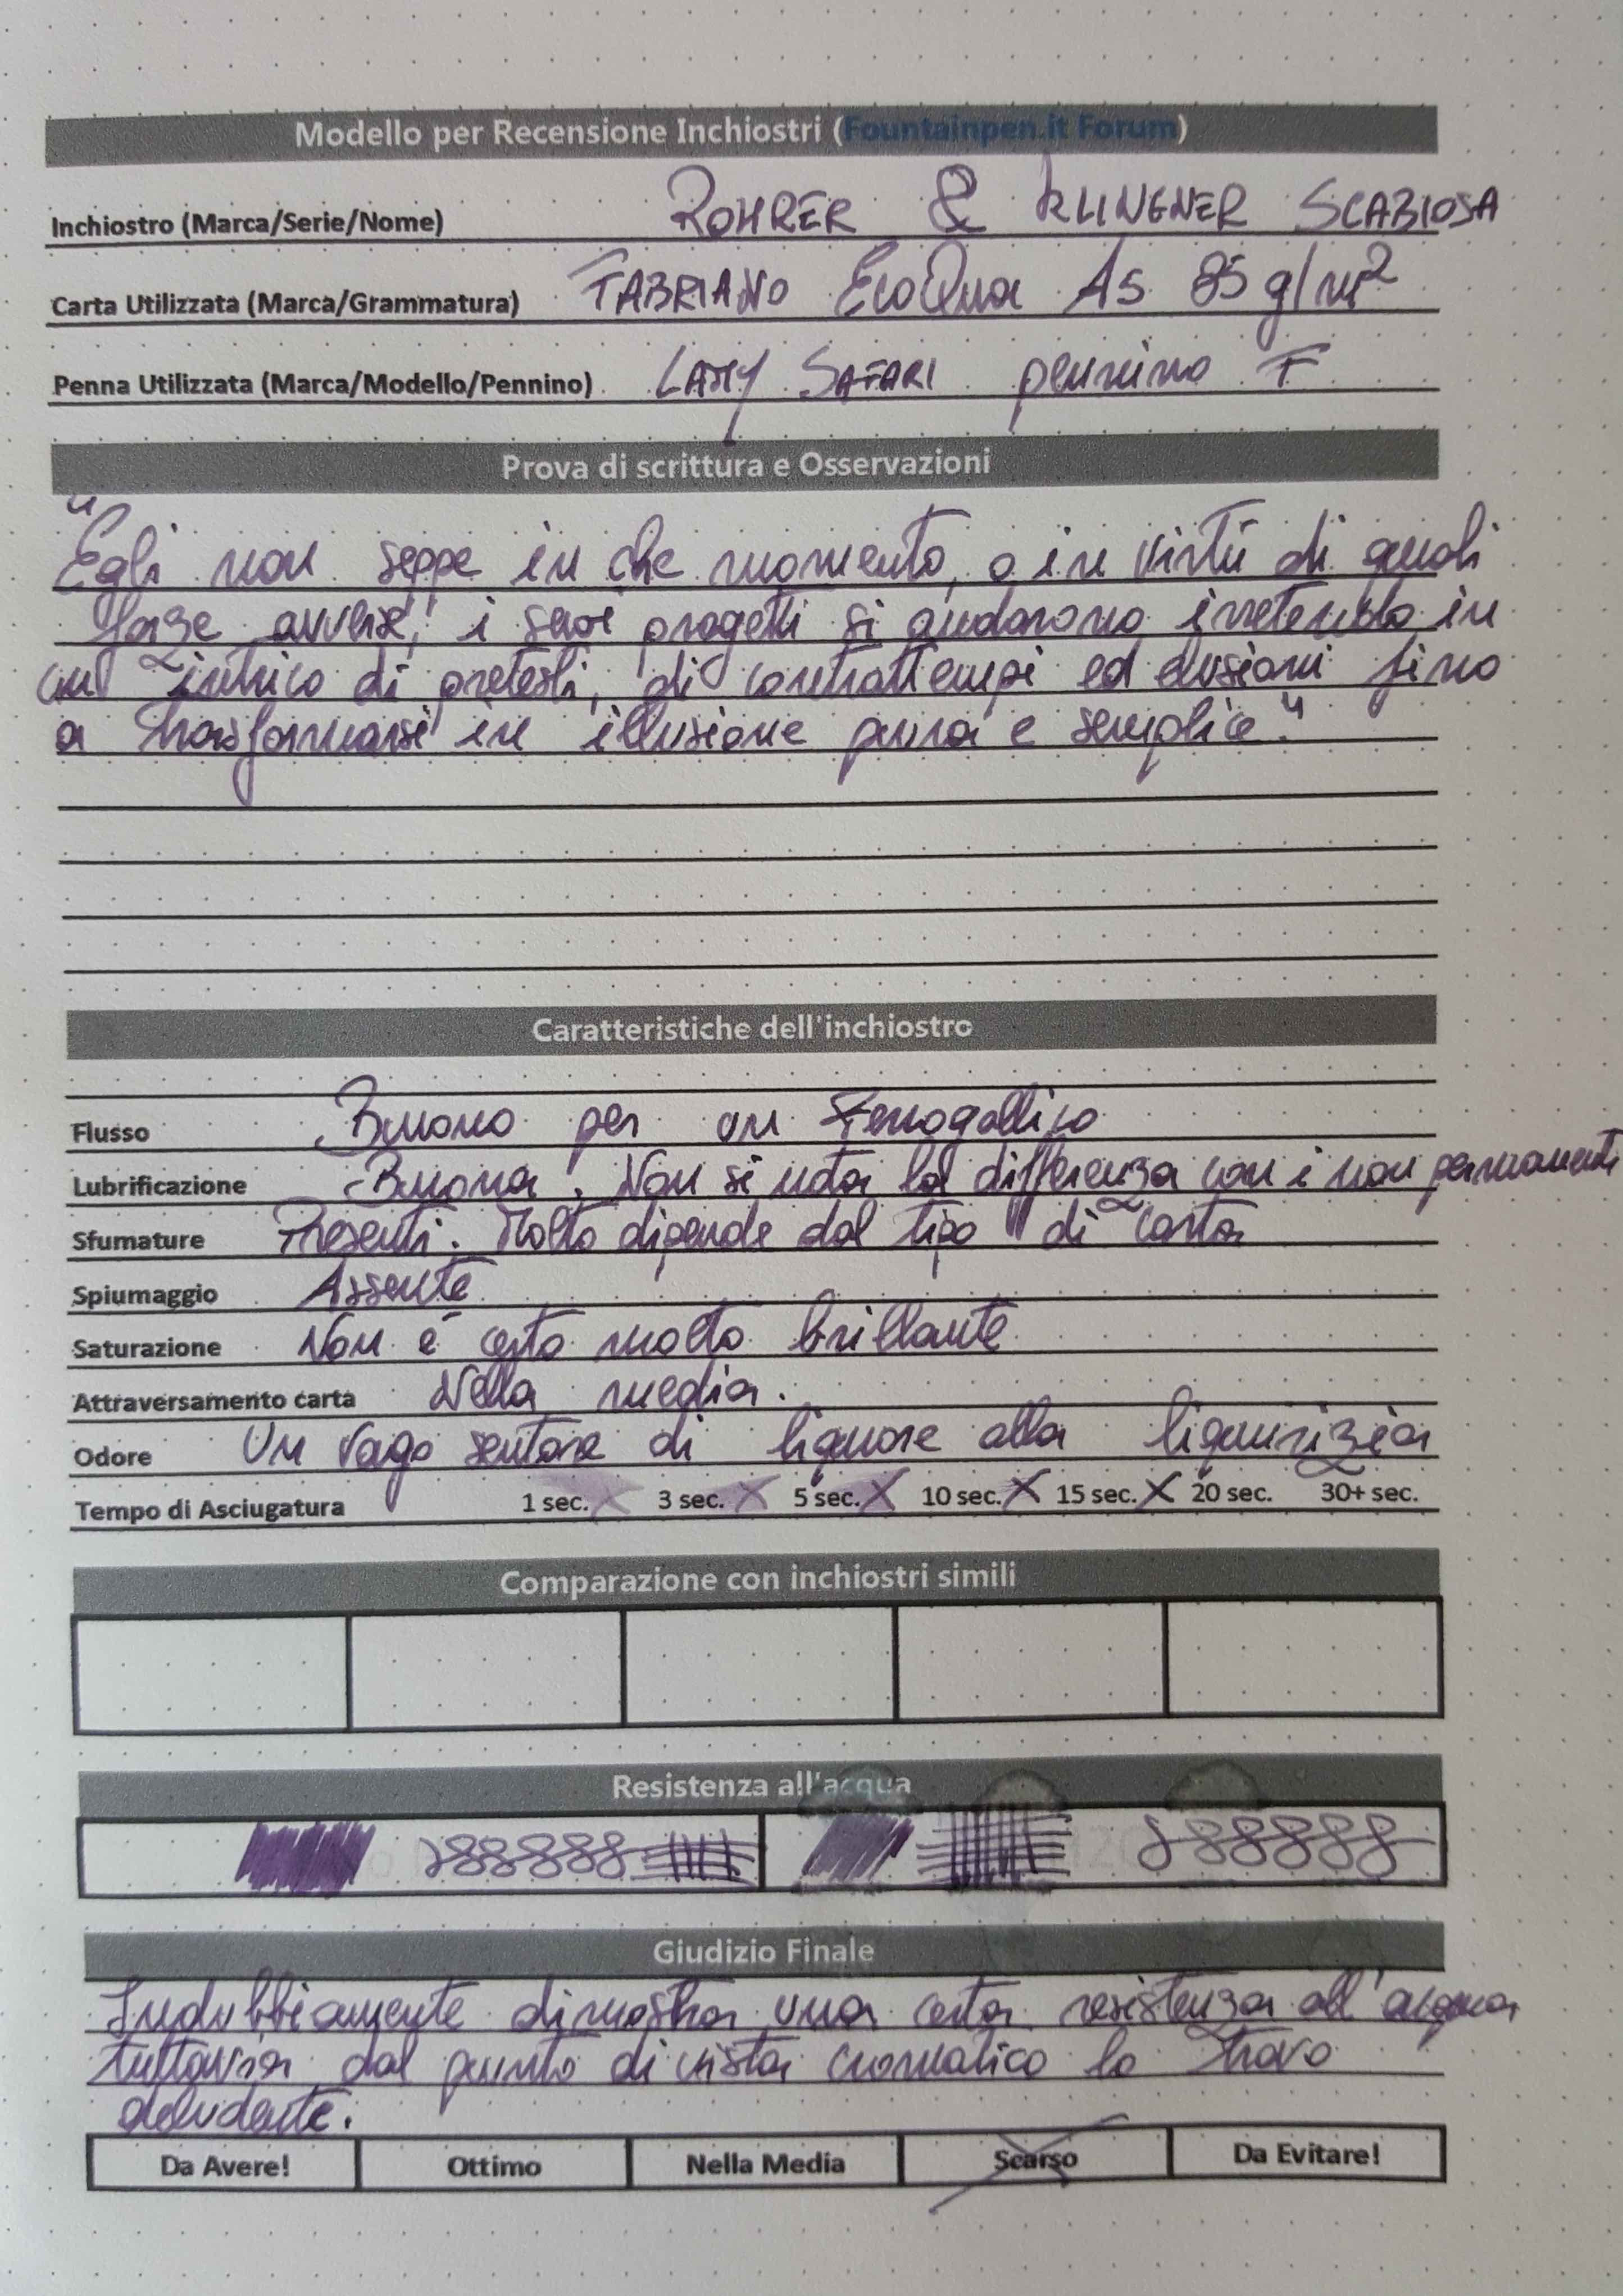 Modello per Recensione Inchiostri (Fountainpen.it Forum)
Inchiostro (Marca/Serie/Nome) ROHRER & KLINGNER SCABIOSA
Carta Utilizzata (Marca/Grammatura) FABRIANO EcoQua A5 85 g/m²
Penna Utilizzata (Marca/Modello/Pennino) LAMY SAFARI pennino F
Prova di scrittura e Osservazioni
"Egli non seppe in che momento, o in virtù di quali
forze avverse, i suoi progetti si andarono irretendo in
un intrico di pretesti, di contrattempi ed elusioni fino
a trasformarsi in illusione pura e semplice."
Caratteristiche dell'inchiostro
Flusso Buono per un Ferrogallico
Lubrificazione Buona. Non si nota la differenza con i non permanenti
Sfumature Presenti. Molto dipende dal tipo di carta
Spiumaggio Assente
Saturazione Non è certo molto brillante
Attraversamento carta Nella media.
Odore Un vago sentore di liquore alla liquirizia
Tempo di Asciugatura 1 sec. X 3 sec. X 5 sec. X 10 sec. X 15 sec. X 20 sec. 30+ sec.
Comparazione con inchiostri simili
Resistenza all'acqua
Giudizio Finale
Indubbiamente dimostra una certa resistenza all'acqua
tuttavia dal punto di vista cromatico lo trovo
deludente.
Da Avere! Ottimo Nella Media Scarso Da Evitare!